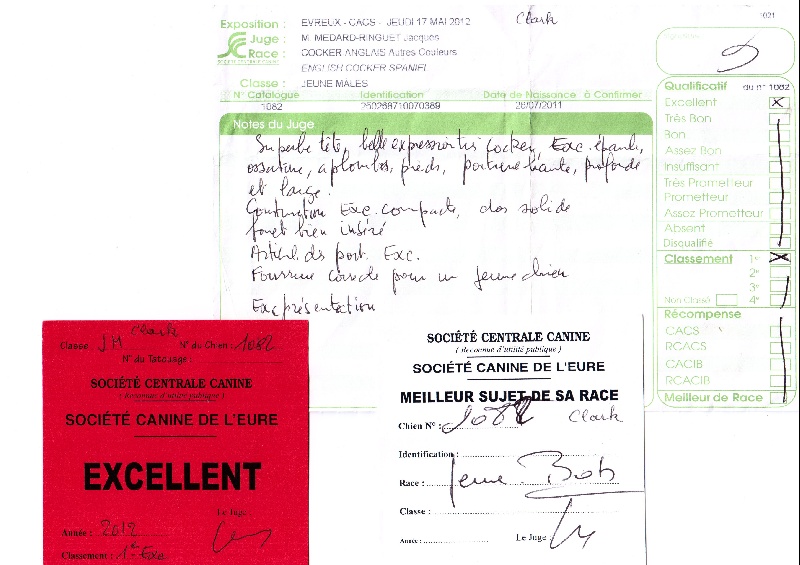 Exposition : EVREUX - CACS - JEUDI 17 MAI 2012
Clark
1021
Juge : M. MEDARD-RINGUET Jacques
Race : COCKER ANGLAIS Autres Couleurs
SOCIÉTÉ CENTRALE CANINE
ENGLISH COCKER SPANIEL
Classe : JEUNE MALES
N° Catalogue Identification Date de Naissance à Confirmer
1082 250268710070389 26/07/2011
Notes du Juge
Superbe tête, belle expression très Cocker, Exc. épaule,
ossature, aplombs, pieds, poitrine haute, profonde
et large.
Construction Exc. compacte, dos solide
fouet bien inséré
port. Exc.
Fourrure correcte pour un jeune chien
Exc présentation
Qualificatif du n° 1082
Excellent
Très Bon
Bon
Assez Bon
Insuffisant
Très Prometteur
Prometteur
Assez Prometteur
Absent
Disqualifié
Classement 1er
2e
3e
Non Classé 4e
Récompense
CACS
RCACS
CACIB
RCACIB
Meilleur de Race
Clark
Classe : JM N° du Chien : 1082
N° du Tatouage :
SOCIÉTÉ CENTRALE CANINE
( Reconnue d'utilité publique )
SOCIÉTÉ CANINE DE L'EURE
EXCELLENT
Le Juge
Année : 2012
Classement : 1er Exc
SOCIÉTÉ CENTRALE CANINE
( Reconnue d'utilité publique )
SOCIÉTÉ CANINE DE L'EURE
MEILLEUR SUJET DE SA RACE
Chien N° : 1082 Clark
Identification :
Race : Jeune Bob
Classe :
Année : Le Juge